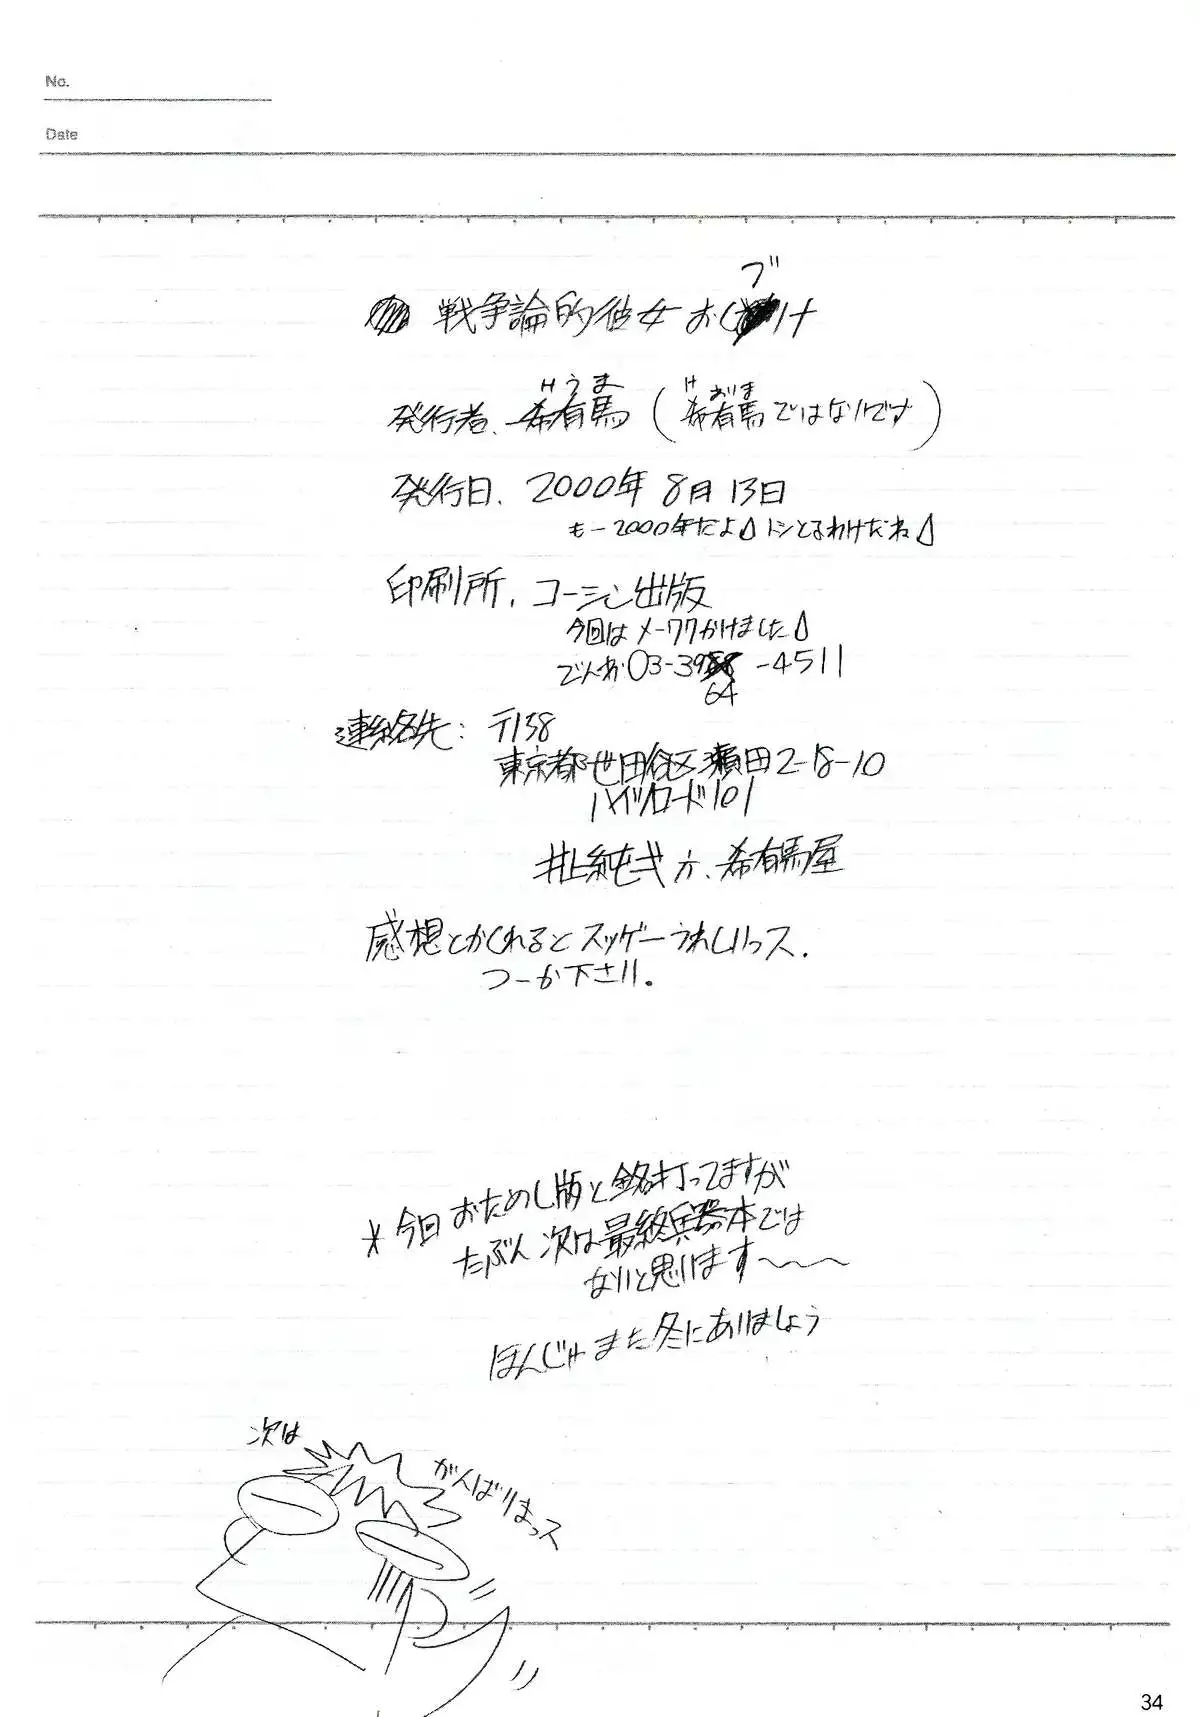 No.
Date
ブ
戦争論的彼女 おけ
Hうま H ありま
発行者. 希有馬 (希有馬ではないです)
発行日. 2000年 8月 13日
もー2000年だよ トシとるわけだね
印刷所. コーシン出版
今回はメーワクかけました
でんわ 03-39 -4511
64
連絡先: 〒158
東京都世田谷区瀬田2-18-10
ハイツロード101
井上純弌方. 希有馬屋
感想とかくれると スッゲーうれしいっス.
つーか下さい。
* 今回 おためし版と銘打ってますが
たぶん 次は最終兵器本では
ないと思います〜〜〜
ほんじゃ また冬にあいましょう
次は
がんばりまっス
34